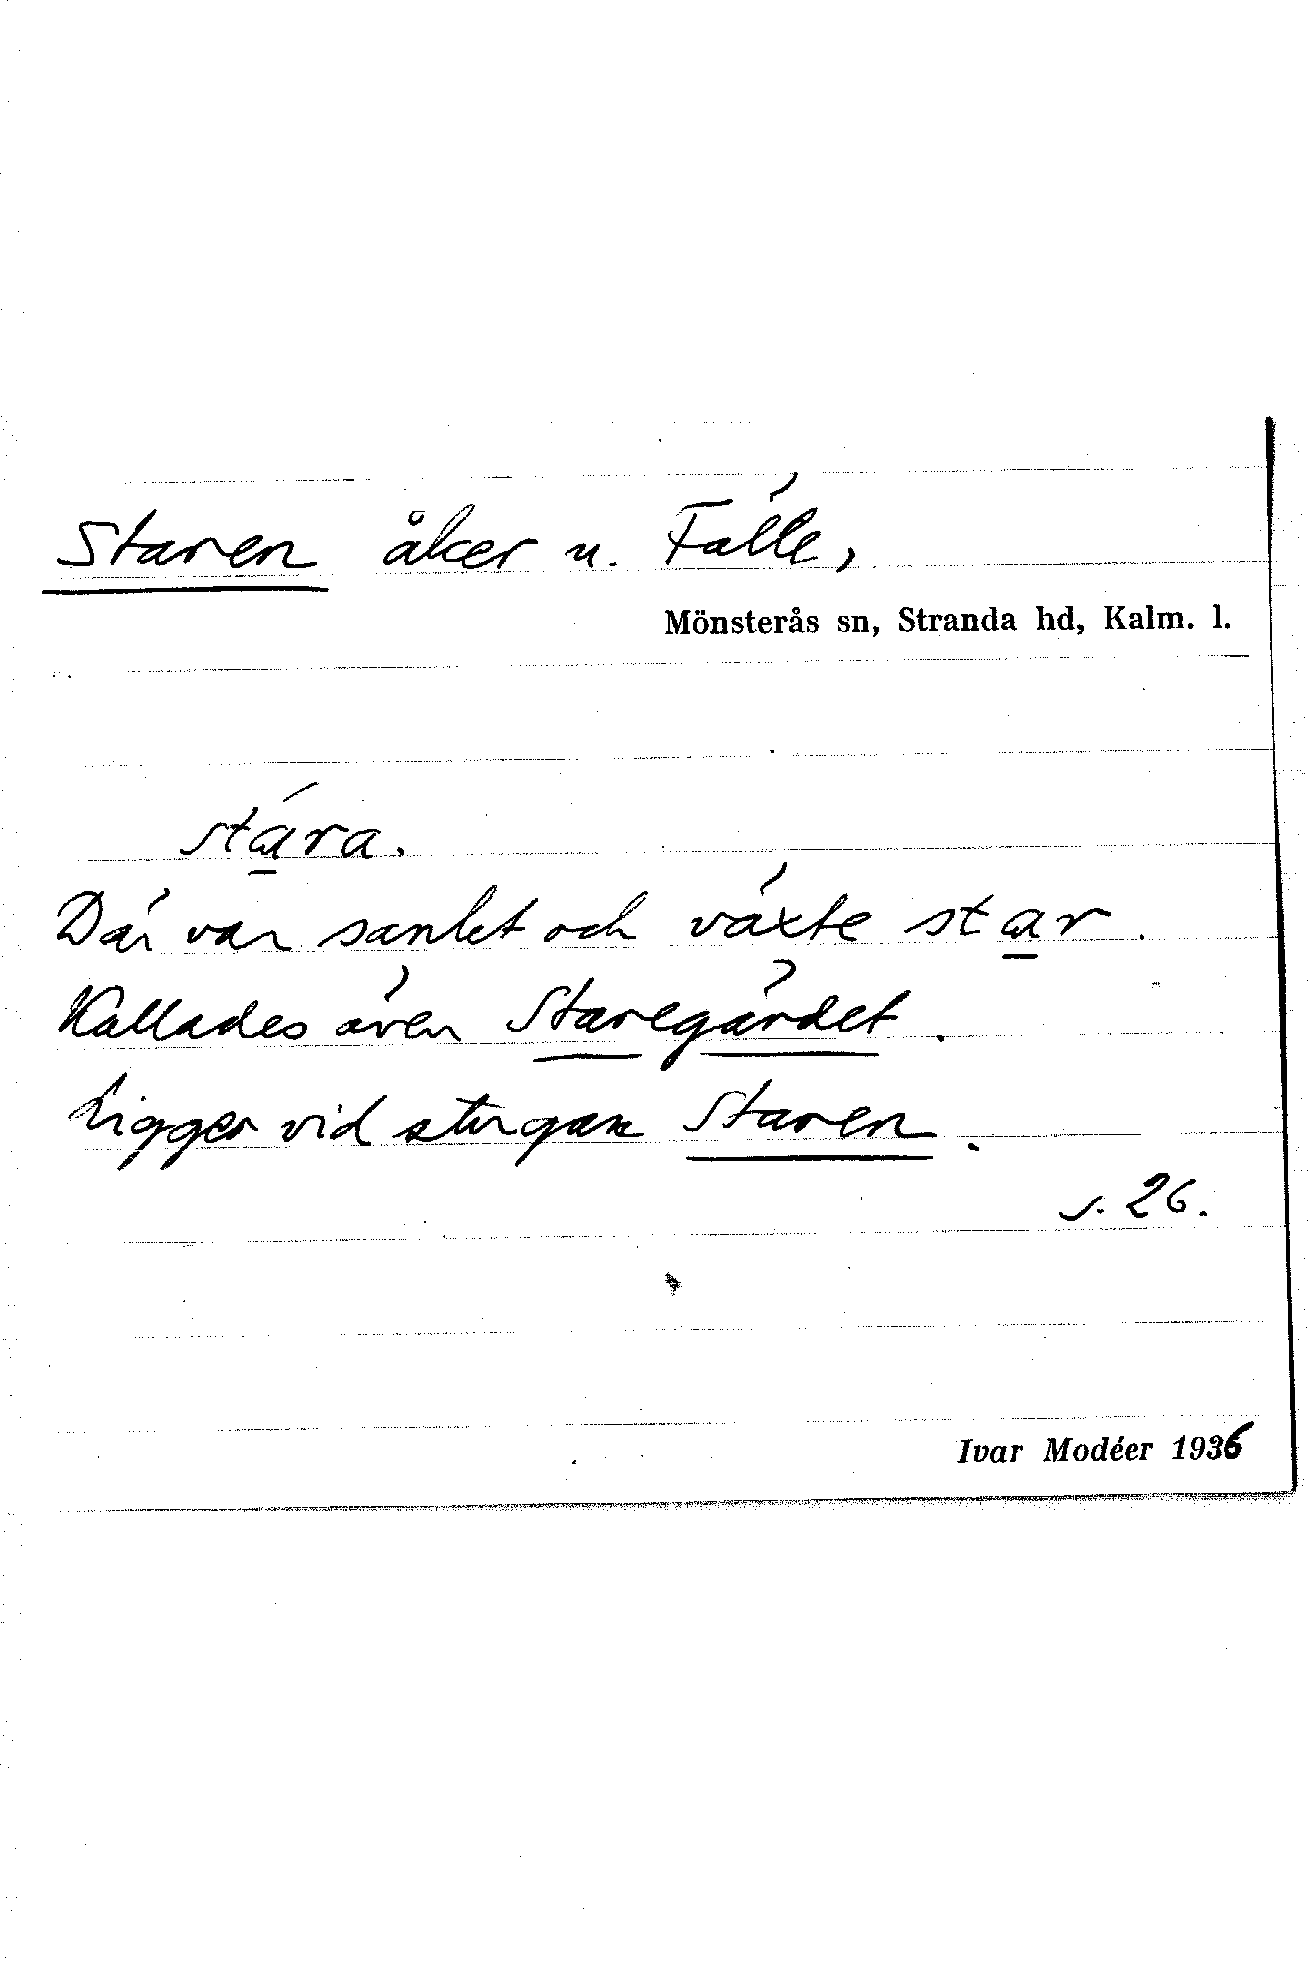 Staren åker u. Fälle,
Mönsterås sn, Stranda hd, Kalm. l.
stára.
Där var sankt och växte star.
Kallades även Staregärdet.
Ligger vid stugan Staren.
s. 26.
Ivar Modéer 1936